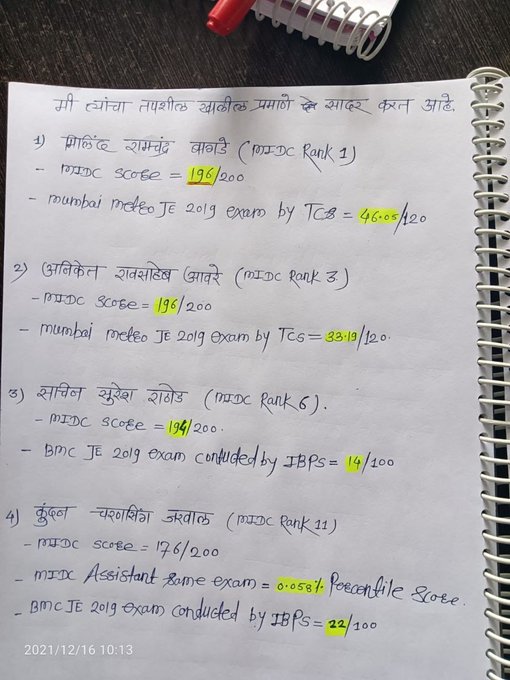 मी त्यांचा तपशील खालील प्रमाणे सादर करत आहे.
1) मिलिंद रामचंद्र बागडे (MIDC Rank 1)
- MIDC score = 196/200
- mumbai metro JE 2019 exam by TCS = 46.05/120
2) अनिकेत रावसाहेब आवरे (MIDC Rank 3)
- MIDC score = 196/200
- mumbai metro JE 2019 exam by TCS = 33.19/120.
3) सचिन सुरेश राठोड (MIDC Rank 6).
- MIDC score = 194/200.
- BMC JE 2019 exam conducted by IBPS = 14/100
4) कुंदन चरणसिंग जरवाल (MIDC Rank 11)
- MIDC score = 176/200
- MIDC Assistant same exam = 0.058% Percentile Score.
- BMC JE 2019 exam conducted by IBPS = 22/100
2021/12/16 10:13